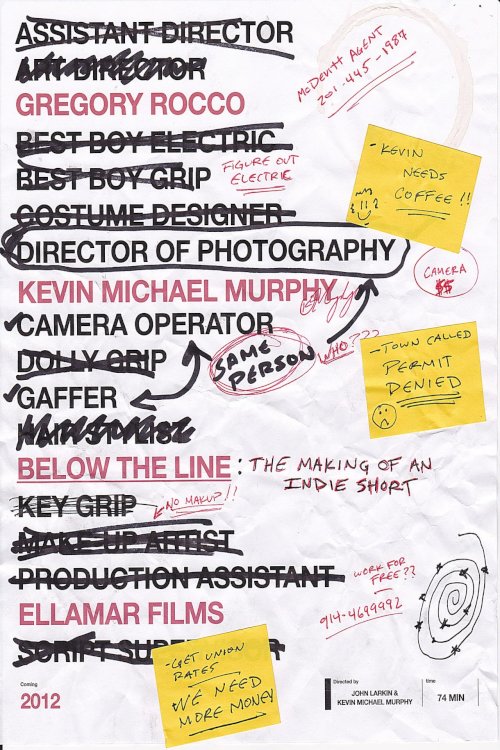 ASSISTANT DIRECTOR
ART DIRECTOR
GREGORY ROCCO
BEST BOY ELECTRIC
BEST BOY GRIP
COSTUME DESIGNER
DIRECTOR OF PHOTOGRAPHY
KEVIN MICHAEL MURPHY
CAMERA OPERATOR
DOLLY GRIP
GAFFER
HAIR STYLIST
BELOW THE LINE : THE MAKING OF AN
INDIE SHORT
KEY GRIP
MAKE-UP ARTIST
PRODUCTION ASSISTANT
ELLAMAR FILMS
SCRIPT SUPERVISOR
McDEVITT AGENT
201-445-1987
FIGURE OUT
ELECTRIC
- KEVIN
NEEDS
COFFEE !!
CAMERA
$$
SAME
PERSON
WHO???
- TOWN CALLED
PERMIT
DENIED
NO MAKUP!!
WORK FOR
FREE??
914-4699992
- GET UNION
RATES
WE NEED
MORE MONEY
Coming
2012
Directed by
JOHN LARKIN &
KEVIN MICHAEL MURPHY
time
74 MIN